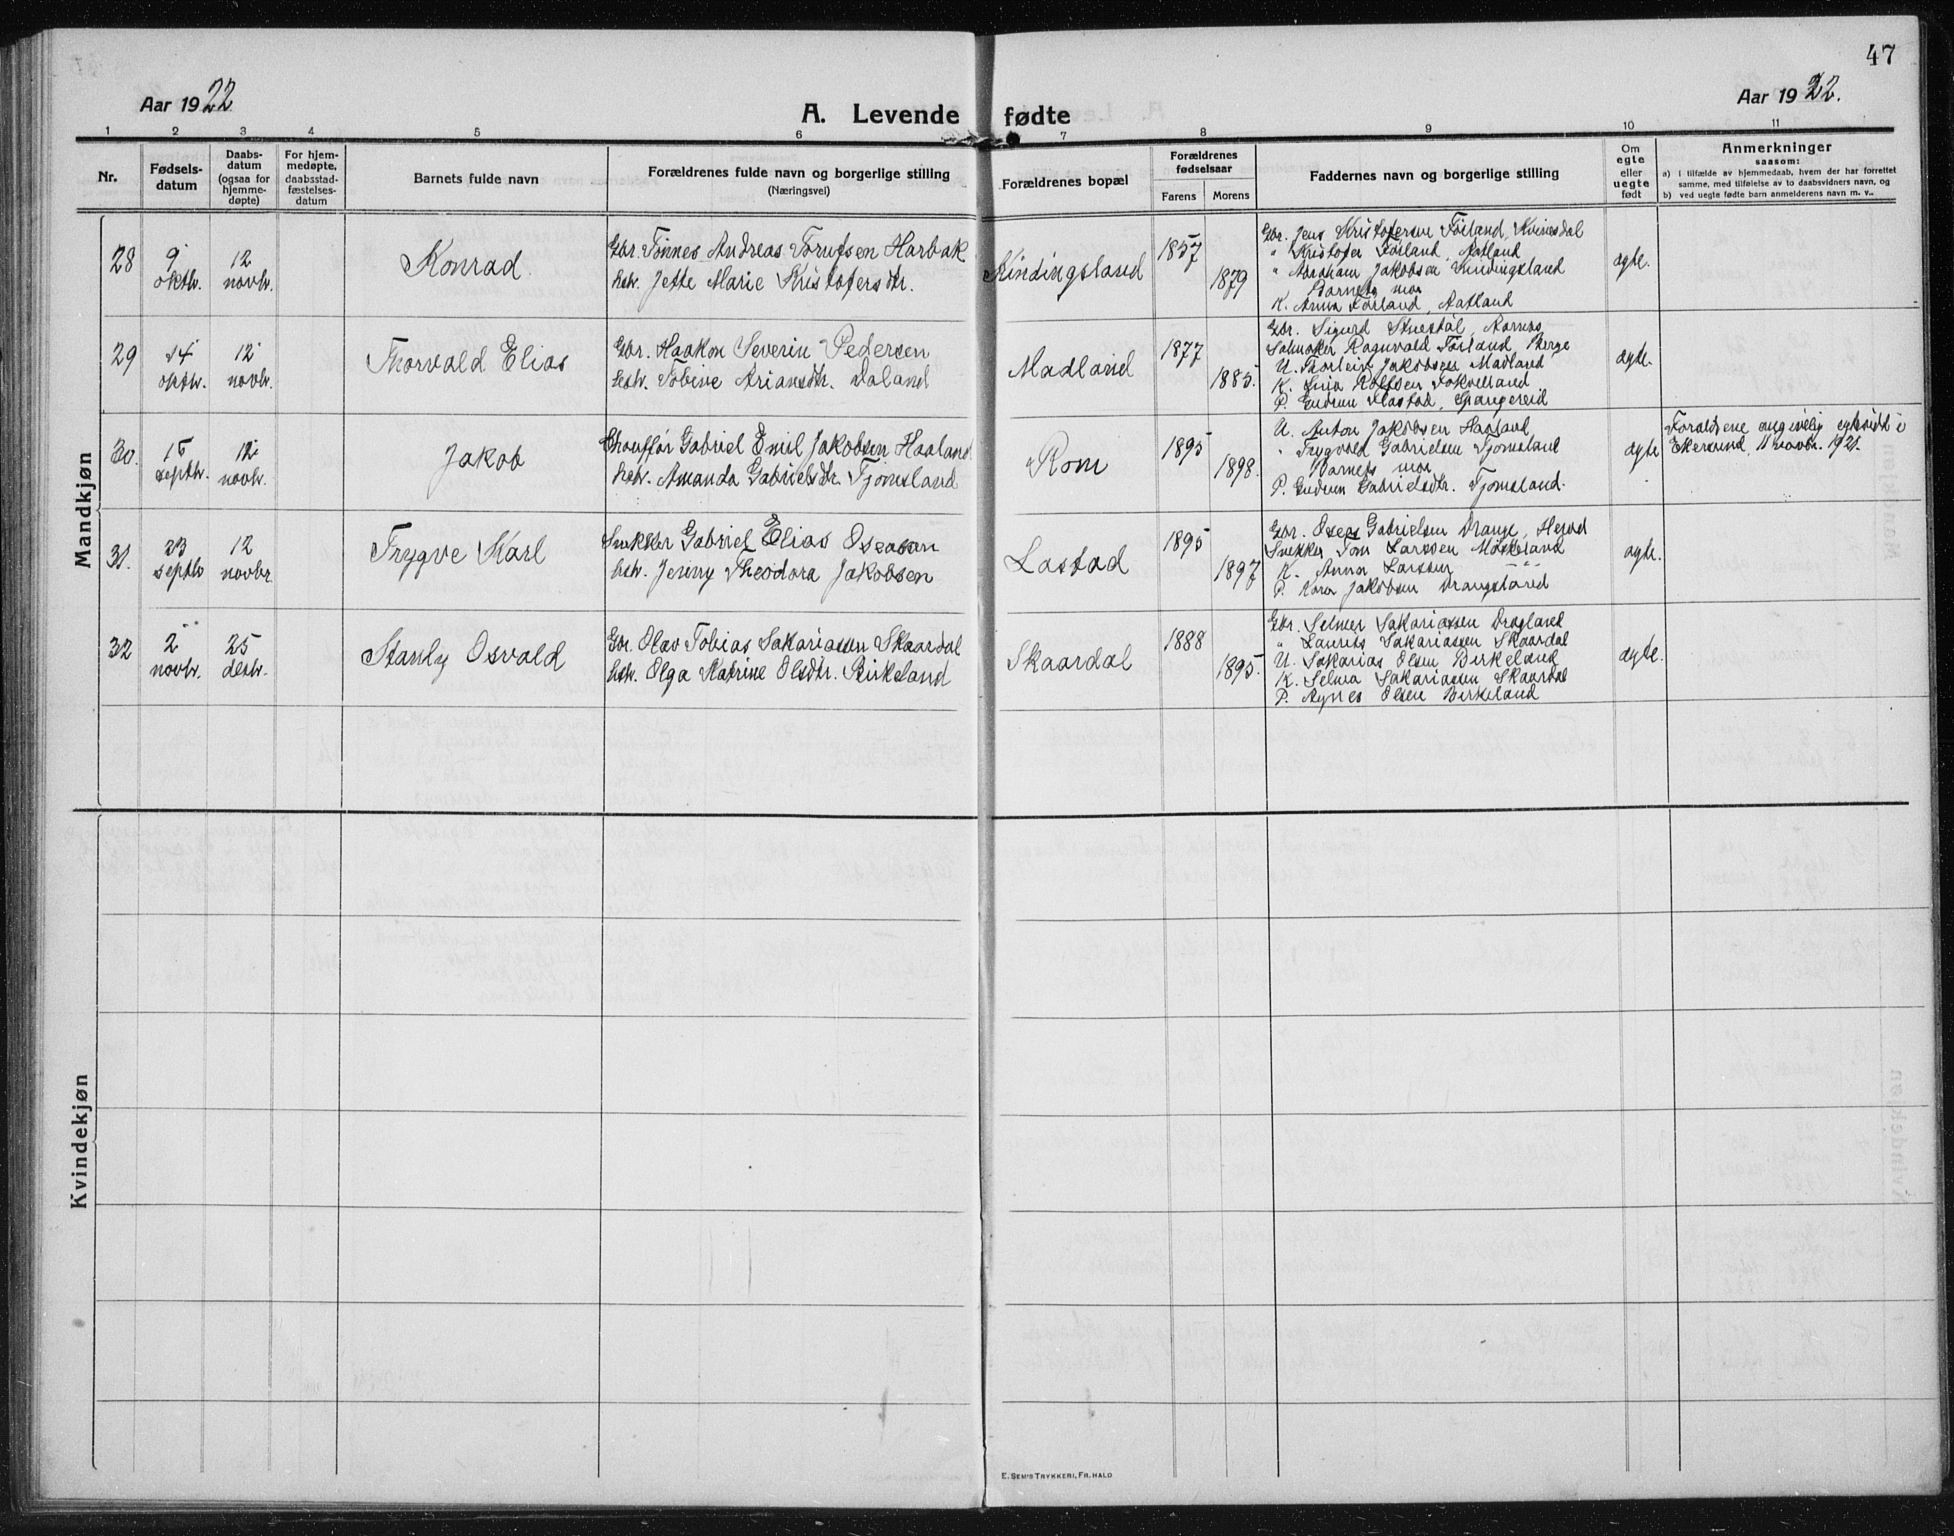 47
Aar 1922
Aar 1922.
A. Levende fødte
1 2 3 4 5 6 7 8 9 10 11
Nr.
Fødsels-
datum
Daabs-
datum
(ogsaa for
hjemme-
døpte)
For hjem-
medøpte,
daabsstad-
fæstelses-
datum
Barnets fulde navn
Forældrenes fulde navn og borgerlige stilling
(Næringsvei)
Forældrenes bopæl
Forældrenes
fødselsaar
Farens Morens
Faddernes navn og borgerlige stilling
Om
egte
eller
uegte
født
Anmerkninger
saasom:
a) i tilfælde av hjemmedaab, hvem der har forrettet
samme, med tilføielse av to daabsvidners navn, og
b) ved uegte fødte barn anmelderens navn m. v..
Mandkjøn
28
9
oktbr.
12
novbr.
Konrad
Gbr. Tønnes Andreas
hstr. Jette Marie Kristofersdtr.
1857
1879
Gbr. Jens Kristofersen Førland, Kvinesdal
" Kristofer Førland, Aatland
" Abraham Jakobsen
Barnets mor
K. Anna Førland, Aatland
egte.
29
14
oktbr.
12
novbr.
Thorvald Elias
Gbr. Haakon Severin Pedersen
hstr. Tobine Ariansdtr.
Madland
1877
1885.
Gbr. Sigurd
Ragnvald Førland Berge
U. Thorleif Jakobsen Madland
K.
P. Gudrun Spangereid
egte.
30.
15
septbr.
12
novbr.
Jakob
Chauffør Gabriel Emil Jakobsen Haaland
hstr. Amanda Gabrielsdtr. Tjomsland
Rom
1895
1898.
U. Anton Jakobsen Haaland
" Trygvald Gabrielsen Tjomsland
Barnets mor
P. Gudrun Gabrielsdtr. Tjomsland.
egte
Foraldrene angivelig egteviet i
Ekersund, 11 novbr. 1921.
31.
23
septbr
12
novbr.
Trygve Karl
Snekker Gabriel Elias Oseasen
hstr. Jenny Theodora Jakobsen
Lastad
1895
1897
Gbr. Oseas Gabrielsen Drange, Herad
Snekker Tom Larssen
K. Anna Larssen
P. Kara Jakobsen Drangsland
egte.
32
2
novbr.
25
desbr.
Stanly Osvald
Gbr. Olav Tobias Sakariassen Skaardal
hstr. Olga Katrine Olsdtr. Birkeland
Skaardal
1888
1895.
Gbr. Selmer Sakariassen Dragland
" Laurits Sakariassen Skaardal
U. Sakarias Olsen Birkeland
K. Selma Sakariassen Skaardal
P. Agnes Olsen Birkeland
egte.
Kvindekjøn
E. Sem's Trykkeri, Fr.hald